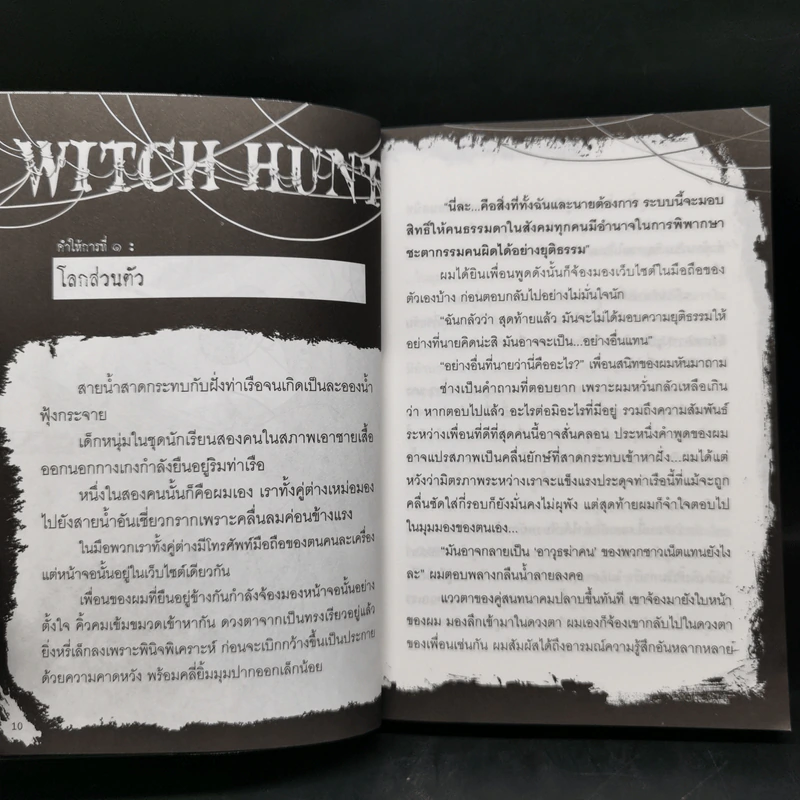 WITCH HUNT
คำให้การที่ ๑ :
โลกส่วนตัว
สายน้ำสาดกระทบกับฝั่งท่าเรือจนเกิดเป็นละอองน้ำ
ฟุ้งกระจาย
เด็กหนุ่มในชุดนักเรียนสองคนในสภาพเอาชายเสื้อ
ออกนอกกางเกงกำลังยืนอยู่ริมท่าเรือ
หนึ่งในสองคนนั้นก็คือผมเอง เราทั้งคู่ต่างเหม่อมอง
ไปยังสายน้ำอันเชี่ยวกรากเพราะคลื่นลมค่อนข้างแรง
ในมือพวกเราทั้งคู่ต่างมีโทรศัพท์มือถือของตนคนละเครื่อง
แต่หน้าจอนั้นอยู่ในเว็บไซต์เดียวกัน
เพื่อนของผมที่ยืนอยู่ข้างกันกำลังจ้องมองหน้าจอนั้นอย่าง
ตั้งใจ คิ้วคมเข้มขมวดเข้าหากัน ดวงตาจากเป็นทรงเรียวอยู่แล้ว
ยิ่งหรี่เล็กลงเพราะพินิจพิเคราะห์ ก่อนจะเบิกกว้างขึ้นเป็นประกาย
ด้วยความคาดหวัง พร้อมคลี่ยิ้มมุมปากออกเล็กน้อย
10
"นี่ละ...คือสิ่งที่ทั้งฉันและนายต้องการ ระบบนี้จะมอบ
สิทธิ์ให้คนธรรมดาในสังคมทุกคนมีอำนาจในการพิพากษา
ชะตากรรมคนผิดได้อย่างยุติธรรม"
ผมได้ยินเพื่อนพูดดังนั้นก็จ้องมองเว็บไซต์ในมือถือของ
ตัวเองบ้าง ก่อนตอบกลับไปอย่างไม่มั่นใจนัก
"ฉันกลัวว่า สุดท้ายแล้ว มันจะไม่ได้มอบความยุติธรรมให้
อย่างที่นายคิดน่ะสิ มันอาจจะเป็น...อย่างอื่นแทน"
"อย่างอื่นที่นายว่านี่คืออะไร?" เพื่อนสนิทของผมหันมาถาม
ช่างเป็นคำถามที่ตอบยาก เพราะผมหวั่นกลัวเหลือเกิน
ว่า หากตอบไปแล้ว อะไรต่อมิอะไรที่มีอยู่ รวมถึงความสัมพันธ์
ระหว่างเพื่อนที่ดีที่สุดคนนี้อาจสั่นคลอน ประหนึ่งคำพูดของผม
อาจแปรสภาพเป็นคลื่นยักษ์ที่สาดกระทบเข้าหาฝั่ง...ผมได้แต่
หวังว่ามิตรภาพระหว่างเราจะแข็งแรงประดุจท่าเรือนี้ที่แม้จะถูก
คลื่นซัดใส่กี่รอบก็ยังมั่นคงไม่ผุพัง แต่สุดท้ายผมก็จำใจตอบไป
ในมุมมองของตนเอง...
"มันอาจกลายเป็น 'อาวุธฆ่าคน' ของพวกชาวเน็ตแทนยังไง
ละ" ผมตอบพลางกลืนน้ำลายลงคอ
แววตาของคู่สนทนาคมปลาบขึ้นทันที เขาจ้องมายังใบหน้า
ของผม มองลึกเข้ามาในดวงตา ผมเองก็จ้องเขากลับไปในดวงตา
ของเพื่อนเช่นกัน ผมสัมผัสได้ถึงอารมณ์ความรู้สึกอันหลากหลาย